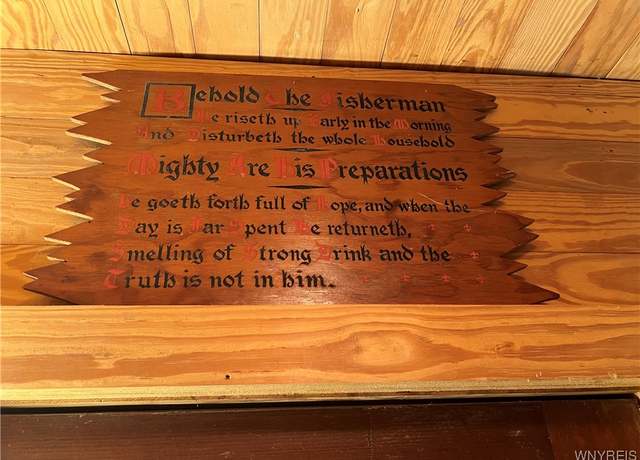 Behold The Fisherman
He riseth up Early in the Morning
And Disturbeth the whole Household
Mighty Are His Preparations
He goeth forth full of Hope, and when the
Day is Far Spent He returneth,
Smelling of Strong Drink and the
Truth is not in him.
WNYREIS